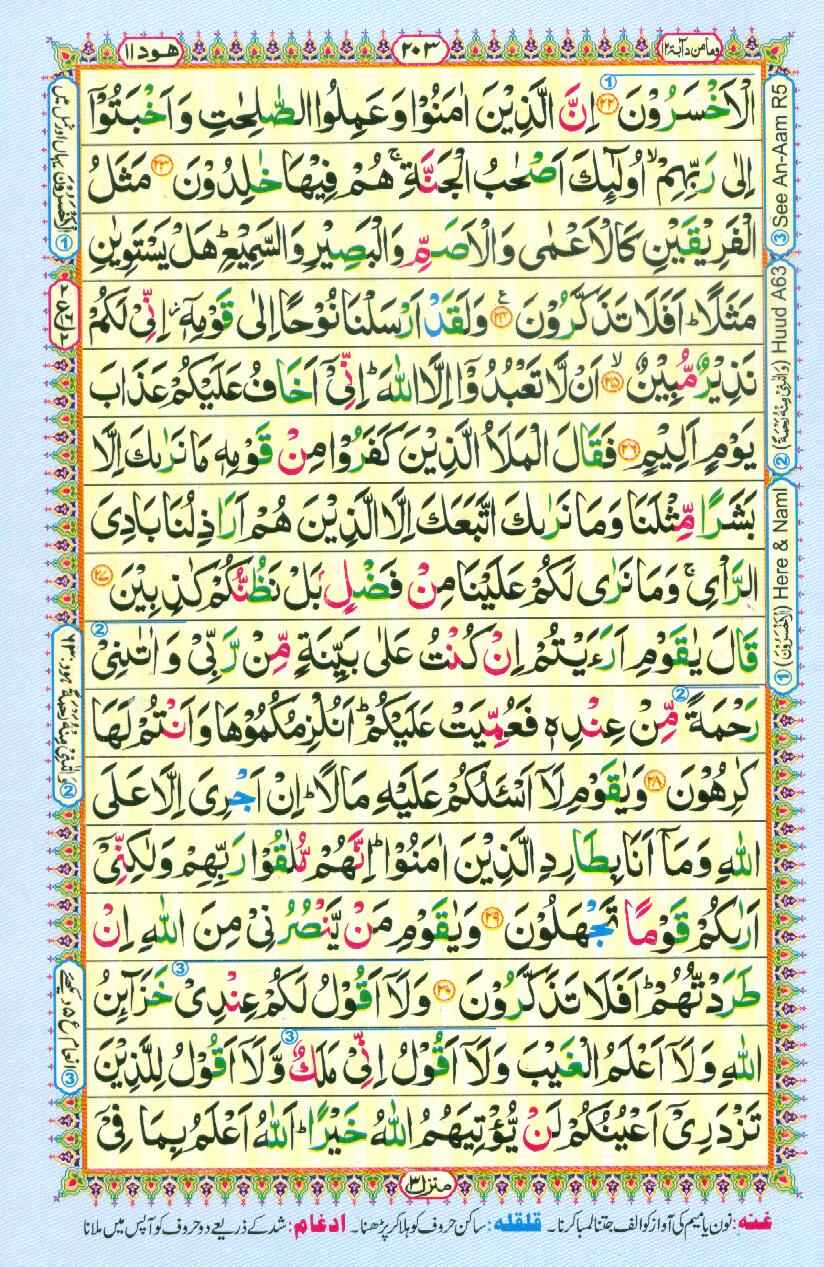 وما من دآبة ١٢
٢٠٣
هود ١١
الْاَخْسَرُوْنَ ﴿۲۲﴾ اِنَّ الَّذِیْنَ اٰمَنُوْا وَعَمِلُوا الصّٰلِحٰتِ وَاَخْبَتُوْۤا
اِلٰی رَبِّهِمْ ۙ اُولٰٓئِكَ اَصْحٰبُ الْجَنَّةِ ۚ هُمْ فِیْهَا خٰلِدُوْنَ ﴿۲۳﴾ مَثَلُ
الْفَرِیْقَیْنِ كَالْاَعْمٰی وَالْاَصَمِّ وَالْبَصِیْرِ وَالسَّمِیْعِ ؕ هَلْ یَسْتَوِیٰنِ
مَثَلًا ؕ اَفَلَا تَذَكَّرُوْنَ ﴿۲۴﴾ وَلَقَدْ اَرْسَلْنَا نُوْحًا اِلٰی قَوْمِهٖۤ ؗ اِنِّیْ لَكُمْ
نَذِیْرٌ مُّبِیْنٌ ﴿ۙ۲۵﴾ اَنْ لَّا تَعْبُدُوْۤا اِلَّا اللّٰهَ ؕ اِنِّیْۤ اَخَافُ عَلَیْكُمْ عَذَابَ
یَوْمٍ اَلِیْمٍ ﴿۲۶﴾ فَقَالَ الْمَلَاُ الَّذِیْنَ كَفَرُوْا مِنْ قَوْمِهٖ مَا نَرٰىكَ اِلَّا
بَشَرًا مِّثْلَنَا وَمَا نَرٰىكَ اتَّبَعَكَ اِلَّا الَّذِیْنَ هُمْ اَرَاذِلُنَا بَادِیَ
الرَّاْیِ ۚ وَمَا نَرٰی لَكُمْ عَلَیْنَا مِنْ فَضْلٍۭ بَلْ نَظُنُّكُمْ كٰذِبِیْنَ ﴿۲۷﴾
قَالَ یٰقَوْمِ اَرَءَیْتُمْ اِنْ كُنْتُ عَلٰی بَیِّنَةٍ مِّنْ رَّبِّیْ وَاٰتٰىنِیْ
رَحْمَةً مِّنْ عِنْدِهٖ فَعُمِّیَتْ عَلَیْكُمْ ؕ اَنُلْزِمُكُمُوْهَا وَاَنْتُمْ لَهَا
كٰرِهُوْنَ ﴿۲۸﴾ وَیٰقَوْمِ لَاۤ اَسْـَٔلُكُمْ عَلَیْهِ مَالًا ؕ اِنْ اَجْرِیَ اِلَّا عَلَی
اللّٰهِ وَمَاۤ اَنَا بِطَارِدِ الَّذِیْنَ اٰمَنُوْا ؕ اِنَّهُمْ مُّلٰقُوْا رَبِّهِمْ وَلٰكِنِّیْۤ
اَرٰىكُمْ قَوْمًا تَجْهَلُوْنَ ﴿۲۹﴾ وَیٰقَوْمِ مَنْ یَّنْصُرُنِیْ مِنَ اللّٰهِ اِنْ
طَرَدْتُّهُمْ ؕ اَفَلَا تَذَكَّرُوْنَ ﴿۳۰﴾ وَلَاۤ اَقُوْلُ لَكُمْ عِنْدِیْ خَزَآئِنُ
اللّٰهِ وَلَاۤ اَعْلَمُ الْغَیْبَ وَلَاۤ اَقُوْلُ اِنِّیْ مَلَكٌ وَّلَاۤ اَقُوْلُ لِلَّذِیْنَ
تَزْدَرِیْۤ اَعْیُنُكُمْ لَنْ یُّؤْتِیَهُمُ اللّٰهُ خَیْرًا ؕ اَللّٰهُ اَعْلَمُ بِمَا فِیْۤ
① (الْاَخْسَرُوْنَ) Here & Naml
② (وَاٰتٰىنِیْ مِنْهُ رَحْمَةً) Huud A63
③ See An-Aam R5
① الْاَخْسَرُوْنَ یہاں اور نمل میں
② وَاٰتٰىنِیْ مِنْهُ رَحْمَةً ہود:٦٣
③ انعام ع ۵ دیکھئے
منزل ٣
غنه: نون یا میم کی آواز کو الف جتنا لمبا کرنا۔ قلقله: ساکن حروف کو ہلا کر پڑھنا۔ ادغام: شد کے ذریعے دو حروف کو آپس میں ملانا